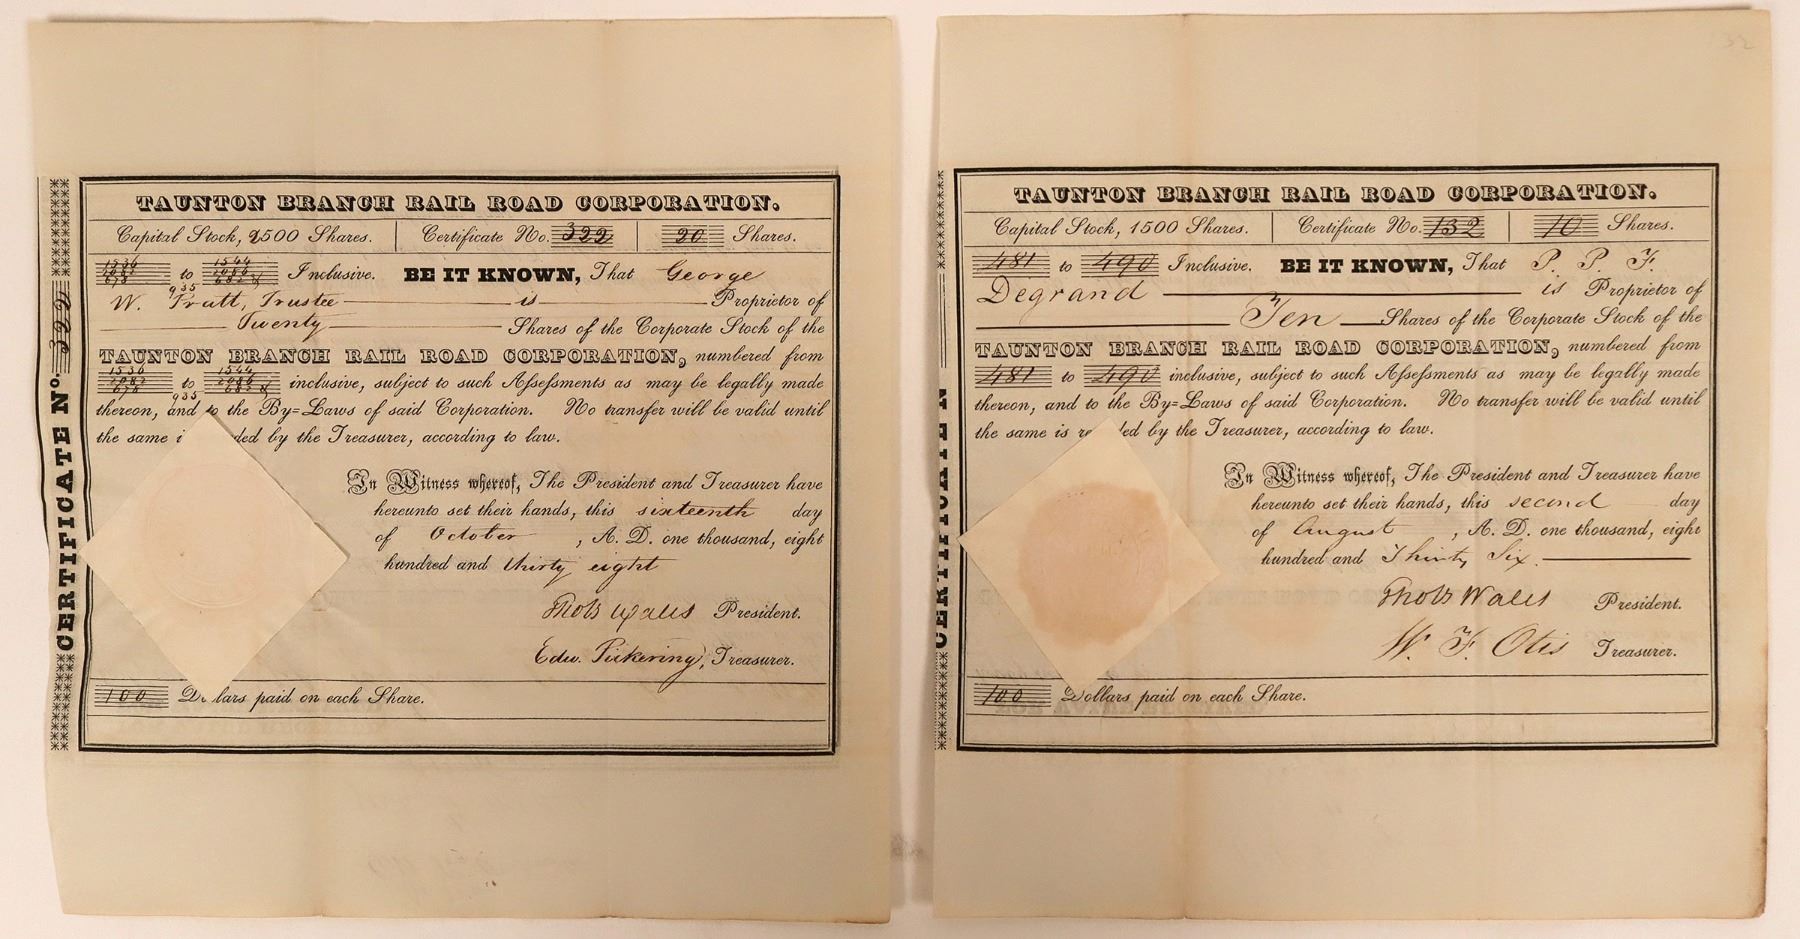 CERTIFICATE No. 322
TAUNTON BRANCH RAIL ROAD CORPORATION.
Capital Stock, 2500 Shares. Certificate No. 322 20 Shares.
1536 1544
to Inclusive. BE IT KNOWN, That George
935
W. Pratt, Trustee is Proprietor of
Twenty Shares of the Corporate Stock of the
TAUNTON BRANCH RAIL ROAD CORPORATION, numbered from
1536 1544
to inclusive, subject to such Assessments as may be legally made
935
thereon, and to the By=Laws of said Corporation. No transfer will be valid until
the same i ded by the Treasurer, according to law.
In Witness whereof, The President and Treasurer have
hereunto set their hands, this sixteenth day
of October, A. D. one thousand, eight
hundred and thirty eight
Thos Wales President.
Edw. Pickering, Treasurer.
100 Dollars paid on each Share.
132
CERTIFICATE N
TAUNTON BRANCH RAIL ROAD CORPORATION.
Capital Stock, 1500 Shares. Certificate No. 132 10 Shares.
481 to 490 Inclusive. BE IT KNOWN, That P. P. F.
Degrand is Proprietor of
Ten Shares of the Corporate Stock of the
TAUNTON BRANCH RAIL ROAD CORPORATION, numbered from
481 to 490 inclusive, subject to such Assessments as may be legally made
thereon, and to the By=Laws of said Corporation. No transfer will be valid until
the same is re ded by the Treasurer, according to law.
In Witness whereof, The President and Treasurer have
hereunto set their hands, this second day
of August, A. D. one thousand, eight
hundred and Thirty Six.
Thos Wales President.
W. F. Otis Treasurer.
100 Dollars paid on each Share.